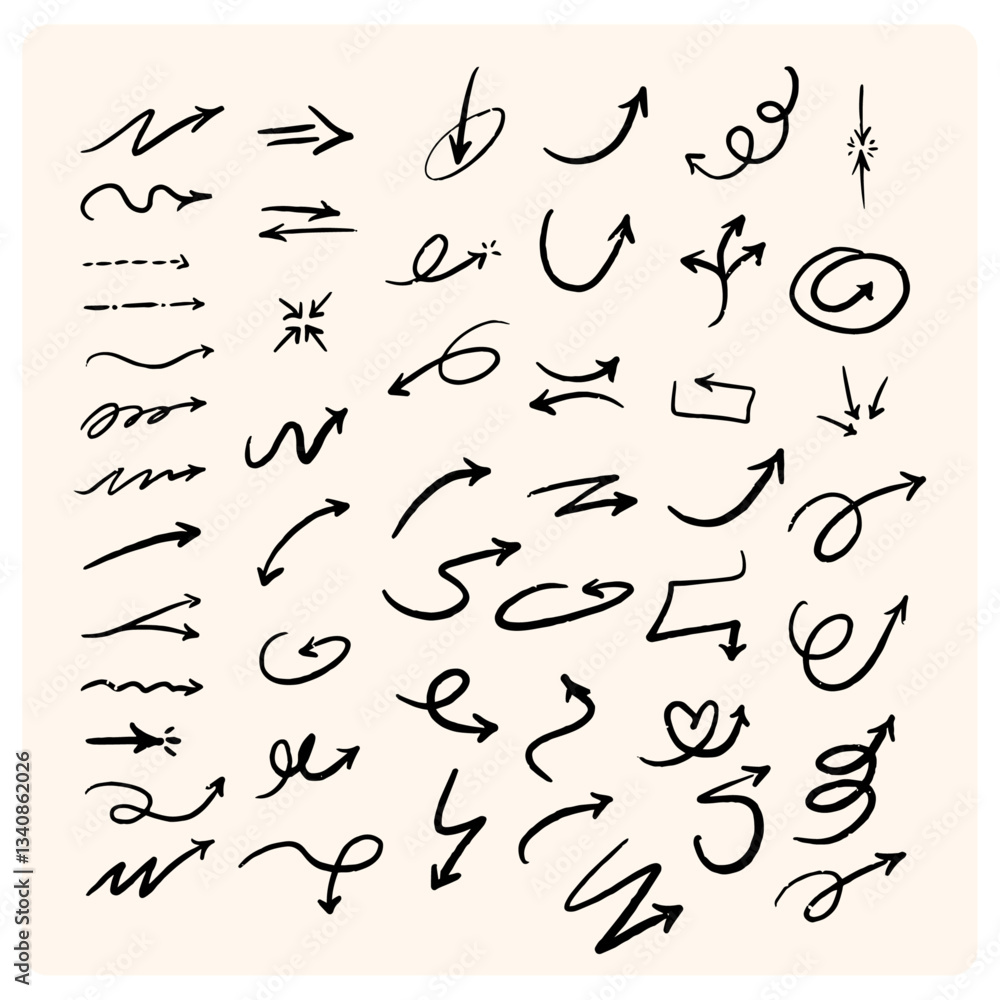 Adobe Stock | #1340862026